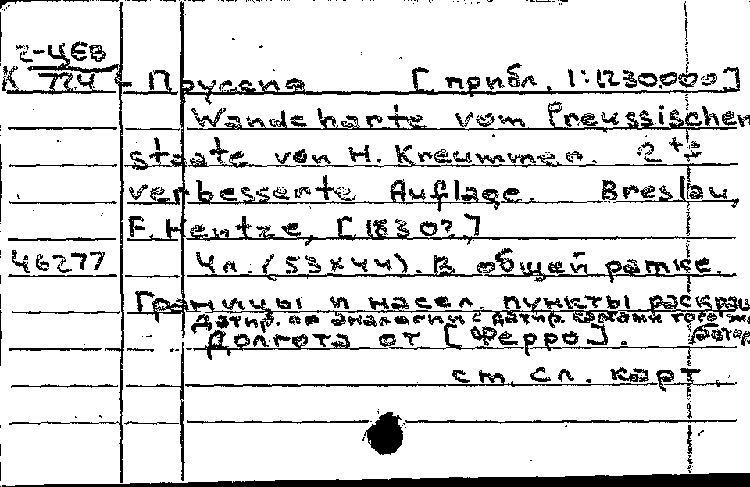 2-ЦЕВ
К 724 - Пруссия [прибл. 1:1230000]
Wandcharte vom Preussischen
staate von H. Kreummen. 2te
verbesserte Auflage. Breslau,
F. Hentze, [1830?]
46277 4 л. (53x44). В общей рамке.
Границы и насел. пункты раскраш
Датир. по аналогии с датир. картами того же
Долгота от [Ферро]. автор
см. сл. карт.